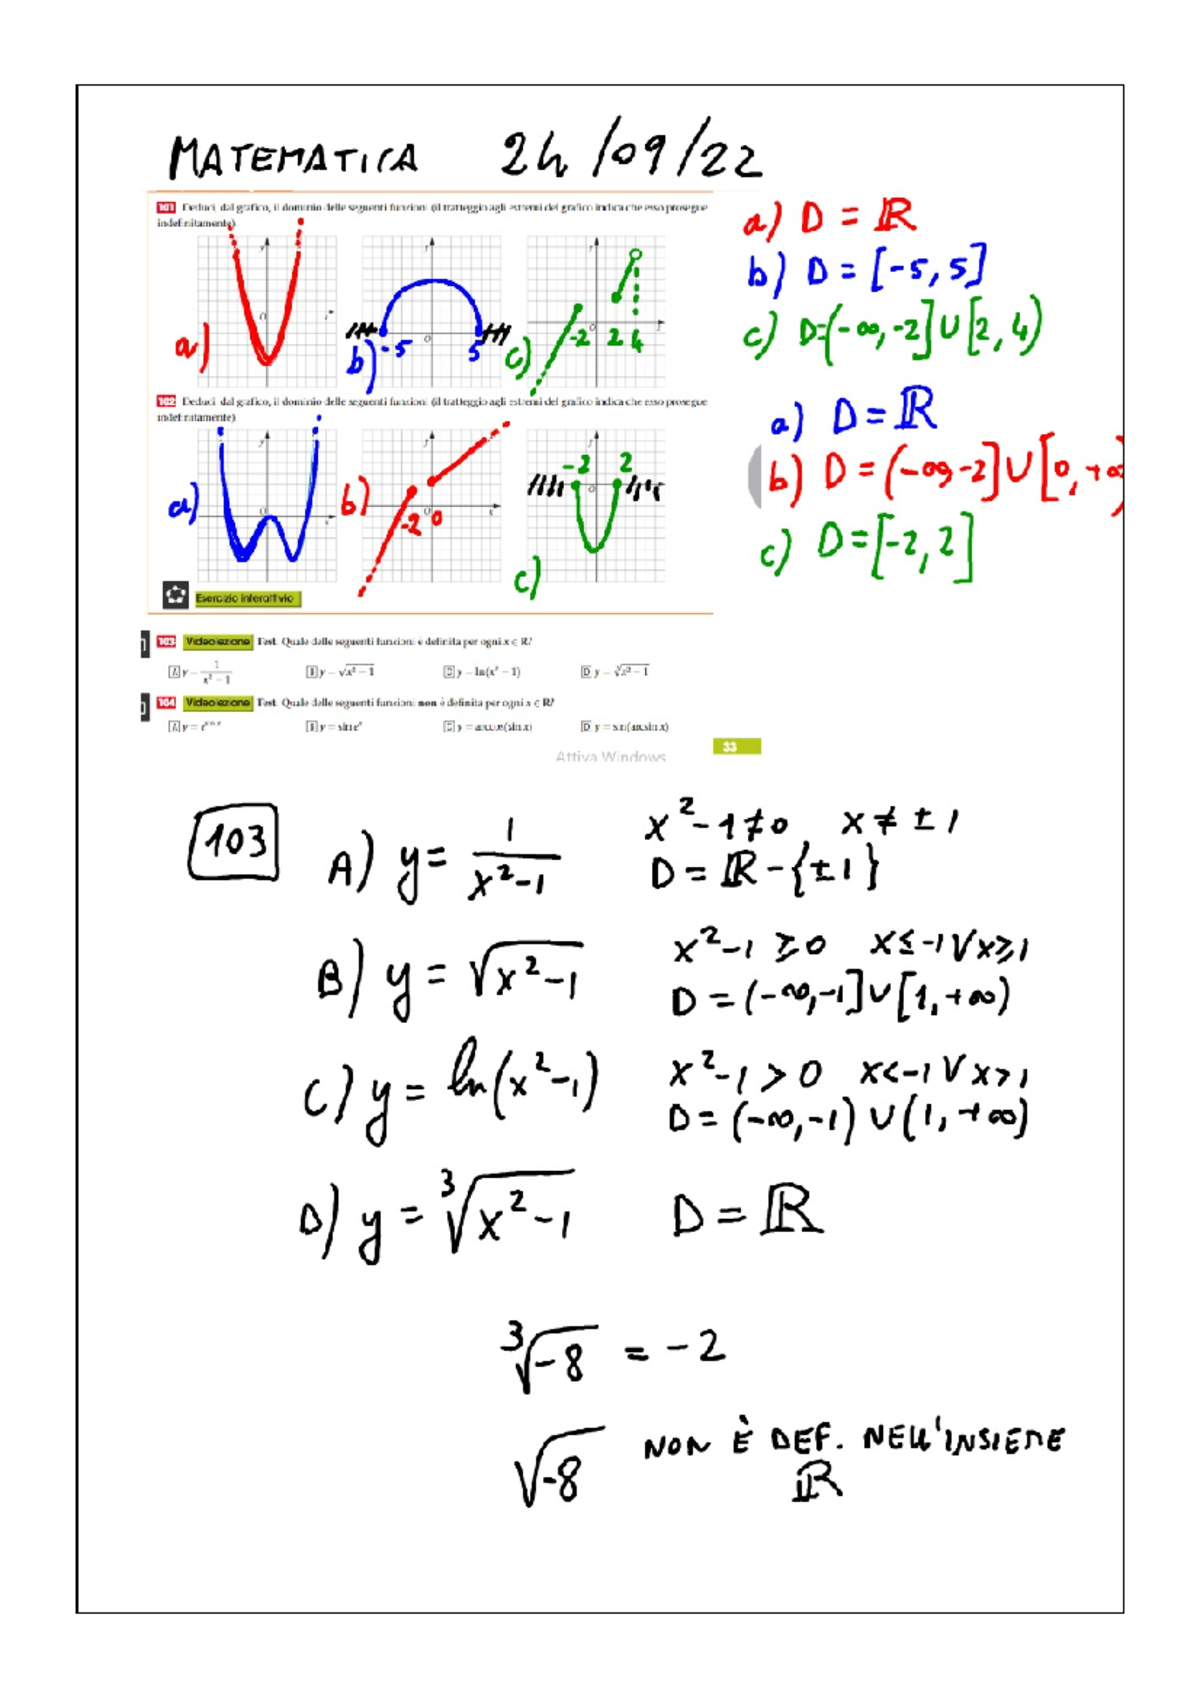 MATEMATICA 24/09/22
101 Deduci, dal grafico, il dominio delle seguenti funzioni (il tratteggio agli estremi del grafico indica che esso prosegue
indefinitamente)
a) D = ℝ
b) D = [-5, 5]
c) D=(-∞, -2] ∪ [2, 4)
a)
y
O
x
b) -5
5
y
O
c)
-2 2 4
O
102 Deduci, dal grafico, il dominio delle seguenti funzioni (il tratteggio agli estremi del grafico indica che esso prosegue
indefinitamente)
a) D = ℝ
b) D = (-∞, -2] ∪ [0, +∞)
c) D = [-2, 2]
a)
y
x
b)
-2 0
y
x
c)
-2 2
O
Esercizio interattivo
103 Videolezione Test. Quale delle seguenti funzioni è definita per ogni x ∈ R?
A y = 1/(x² - 1) B y = √(x² - 1) C y = ln(x² - 1) D y = ∛(x² - 1)
104 Videolezione Test. Quale delle seguenti funzioni non è definita per ogni x ∈ R?
A y = e^(sin x) B y = sin e^x C y = arccos(sin x) D y = sin(arcsin x)
33
Attiva Windows
103
A) y = 1/(x²-1) x²-1≠0, x ≠ ±1
D = ℝ - {±1}
B) y = √(x²-1) x²-1 ≥ 0 x ≤ -1 ∨ x ≥ 1
D = (-∞, -1] ∪ [1, +∞)
C) y = ln(x²-1) x²-1 > 0 x < -1 ∨ x > 1
D = (-∞, -1) ∪ (1, +∞)
D) y = ∛(x²-1) D = ℝ
∛-8 = -2
√-8 NON È DEF. NELL'INSIEME
ℝ